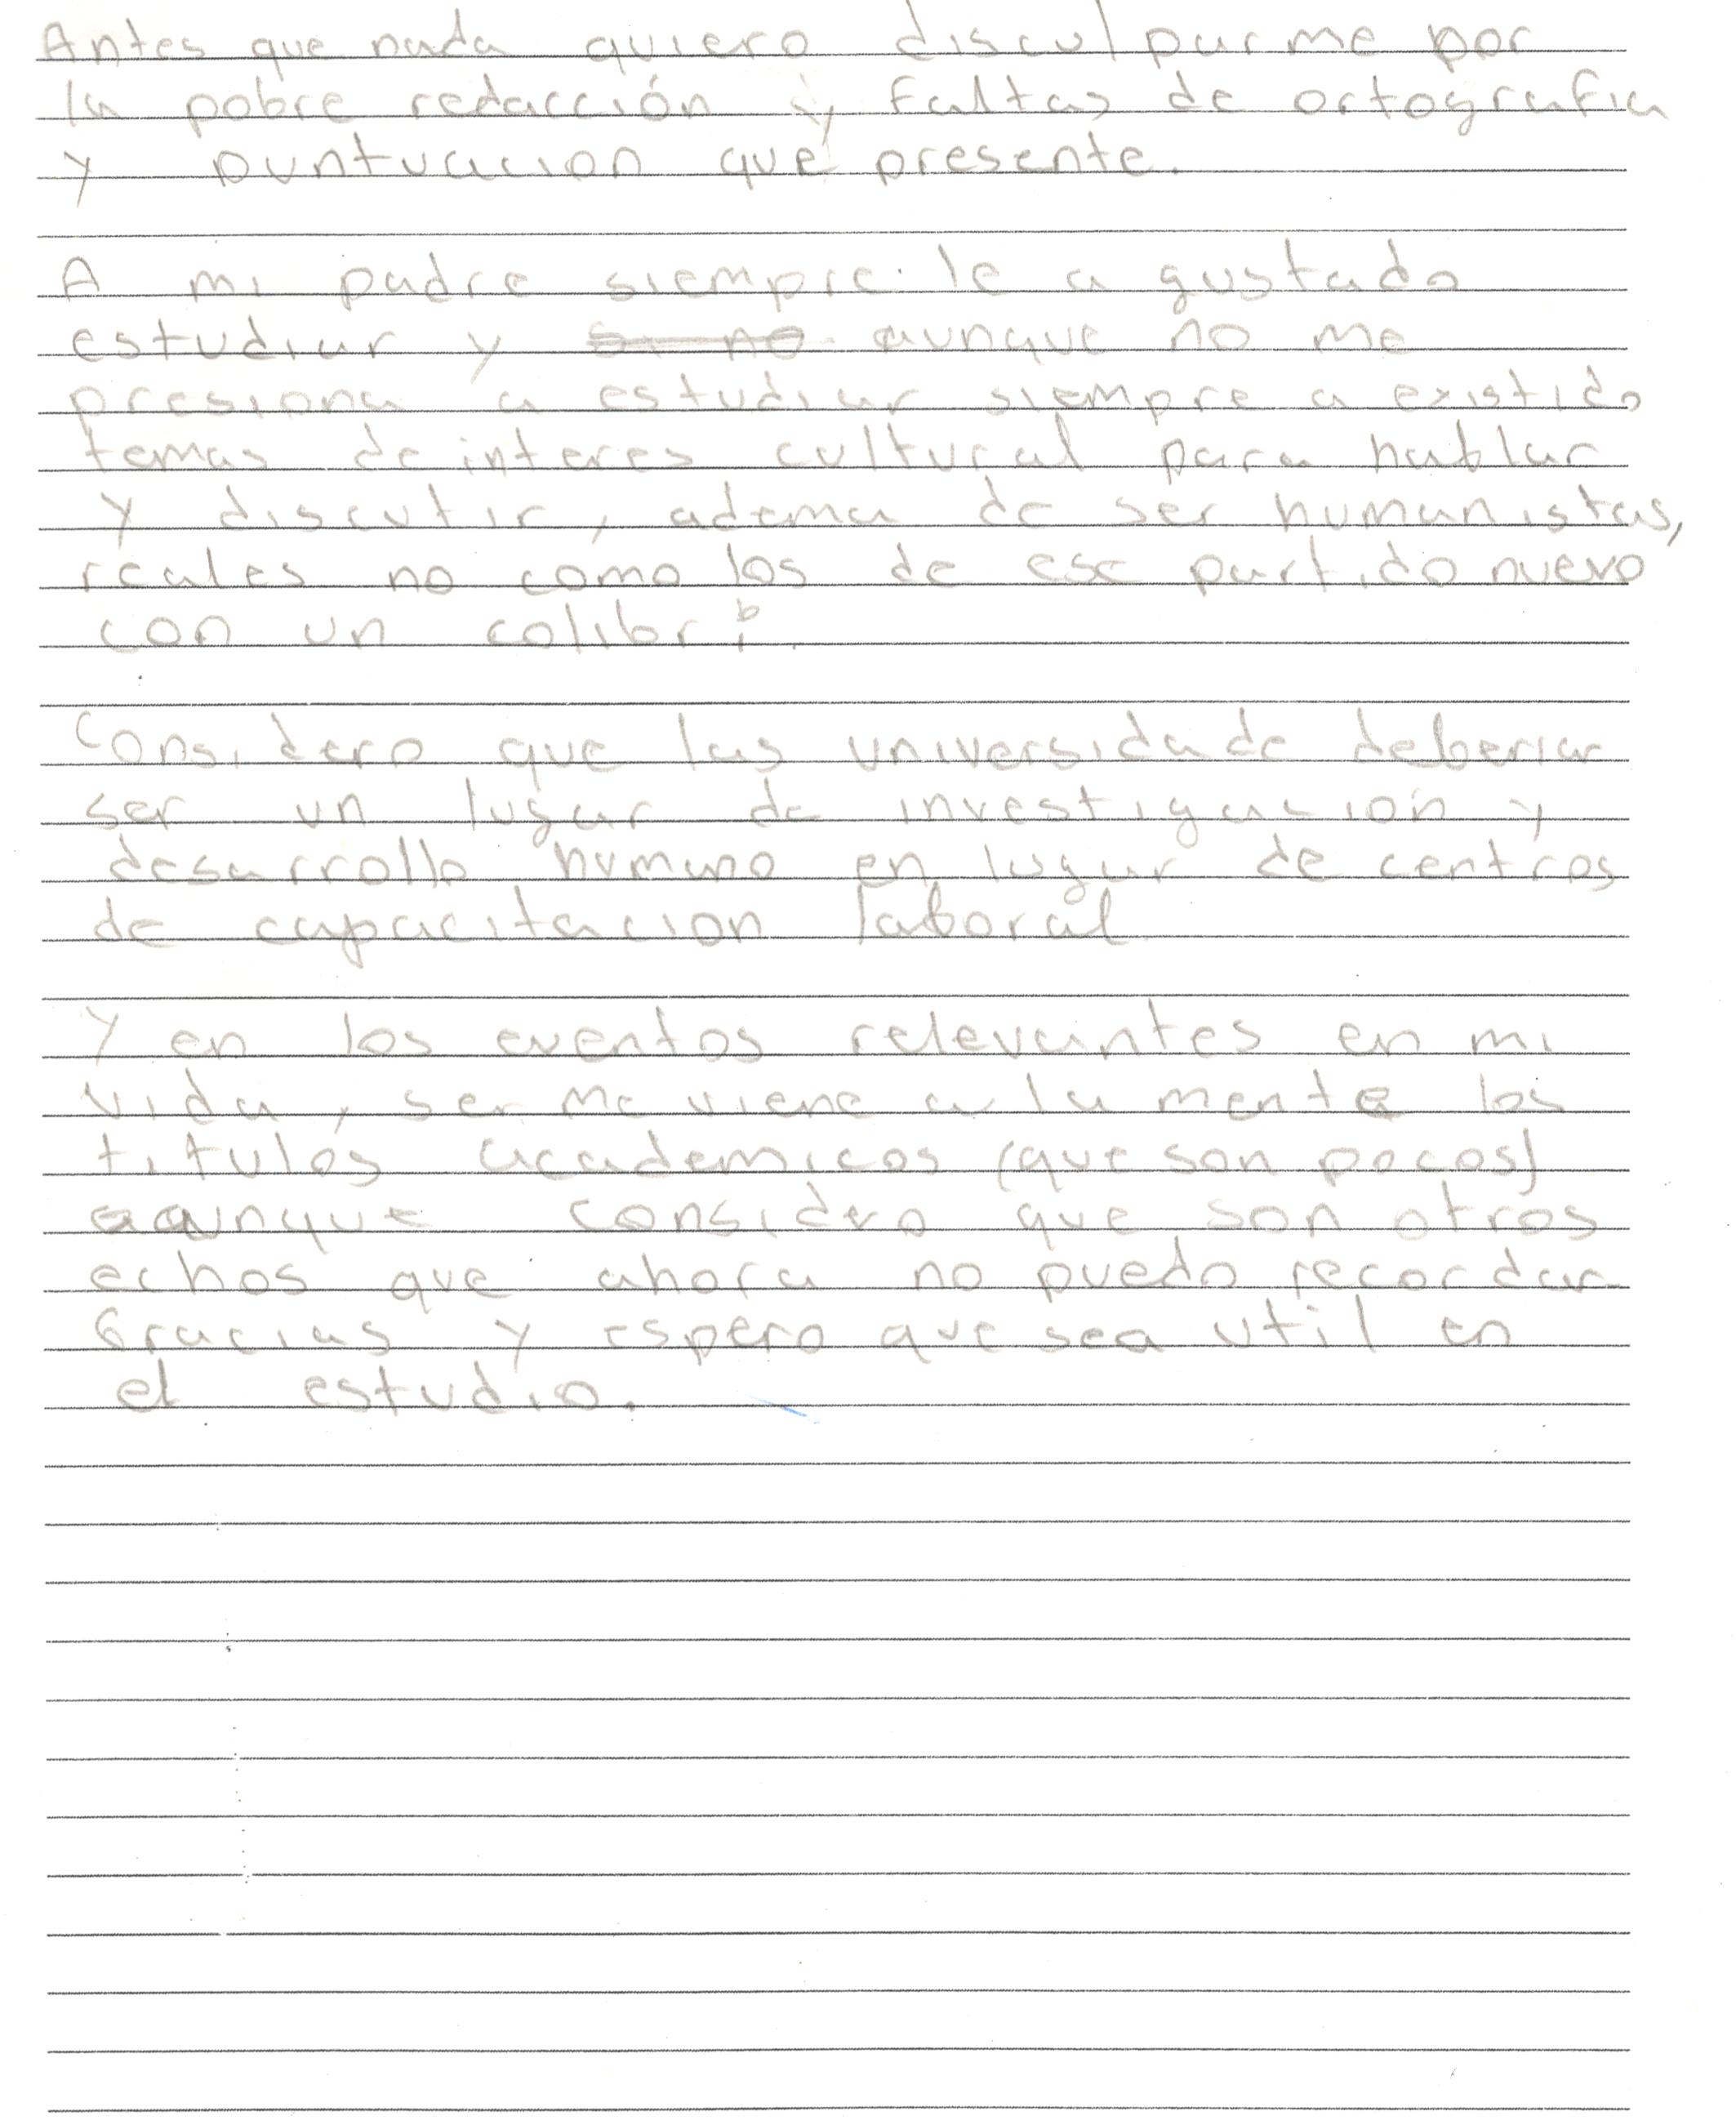 Antes que nada quiero disculparme por
la pobre redacción y faltas de ortografia
y puntuacion que presente.
A mi padre siempre le a gustado
estudiar y si no aunque no me
presiona a estudiar siempre a existido
temas de interes cultural para hablar
y discutir, adema de ser humanistas,
reales no como los de ese partido nuevo
con un colibri.
Considero que las universidade deberiar
ser un lugar de investigasión y
desarrollo humano en lugar de centros
de capacitacion laboral
Y en los eventos relevantes en mi
vida, ser me viene a la mente los
titulos academicos (que son pocos)
aunque considero que son otros
echos que ahora no puedo recordar
Gracias y espero que sea util en
el estudio.